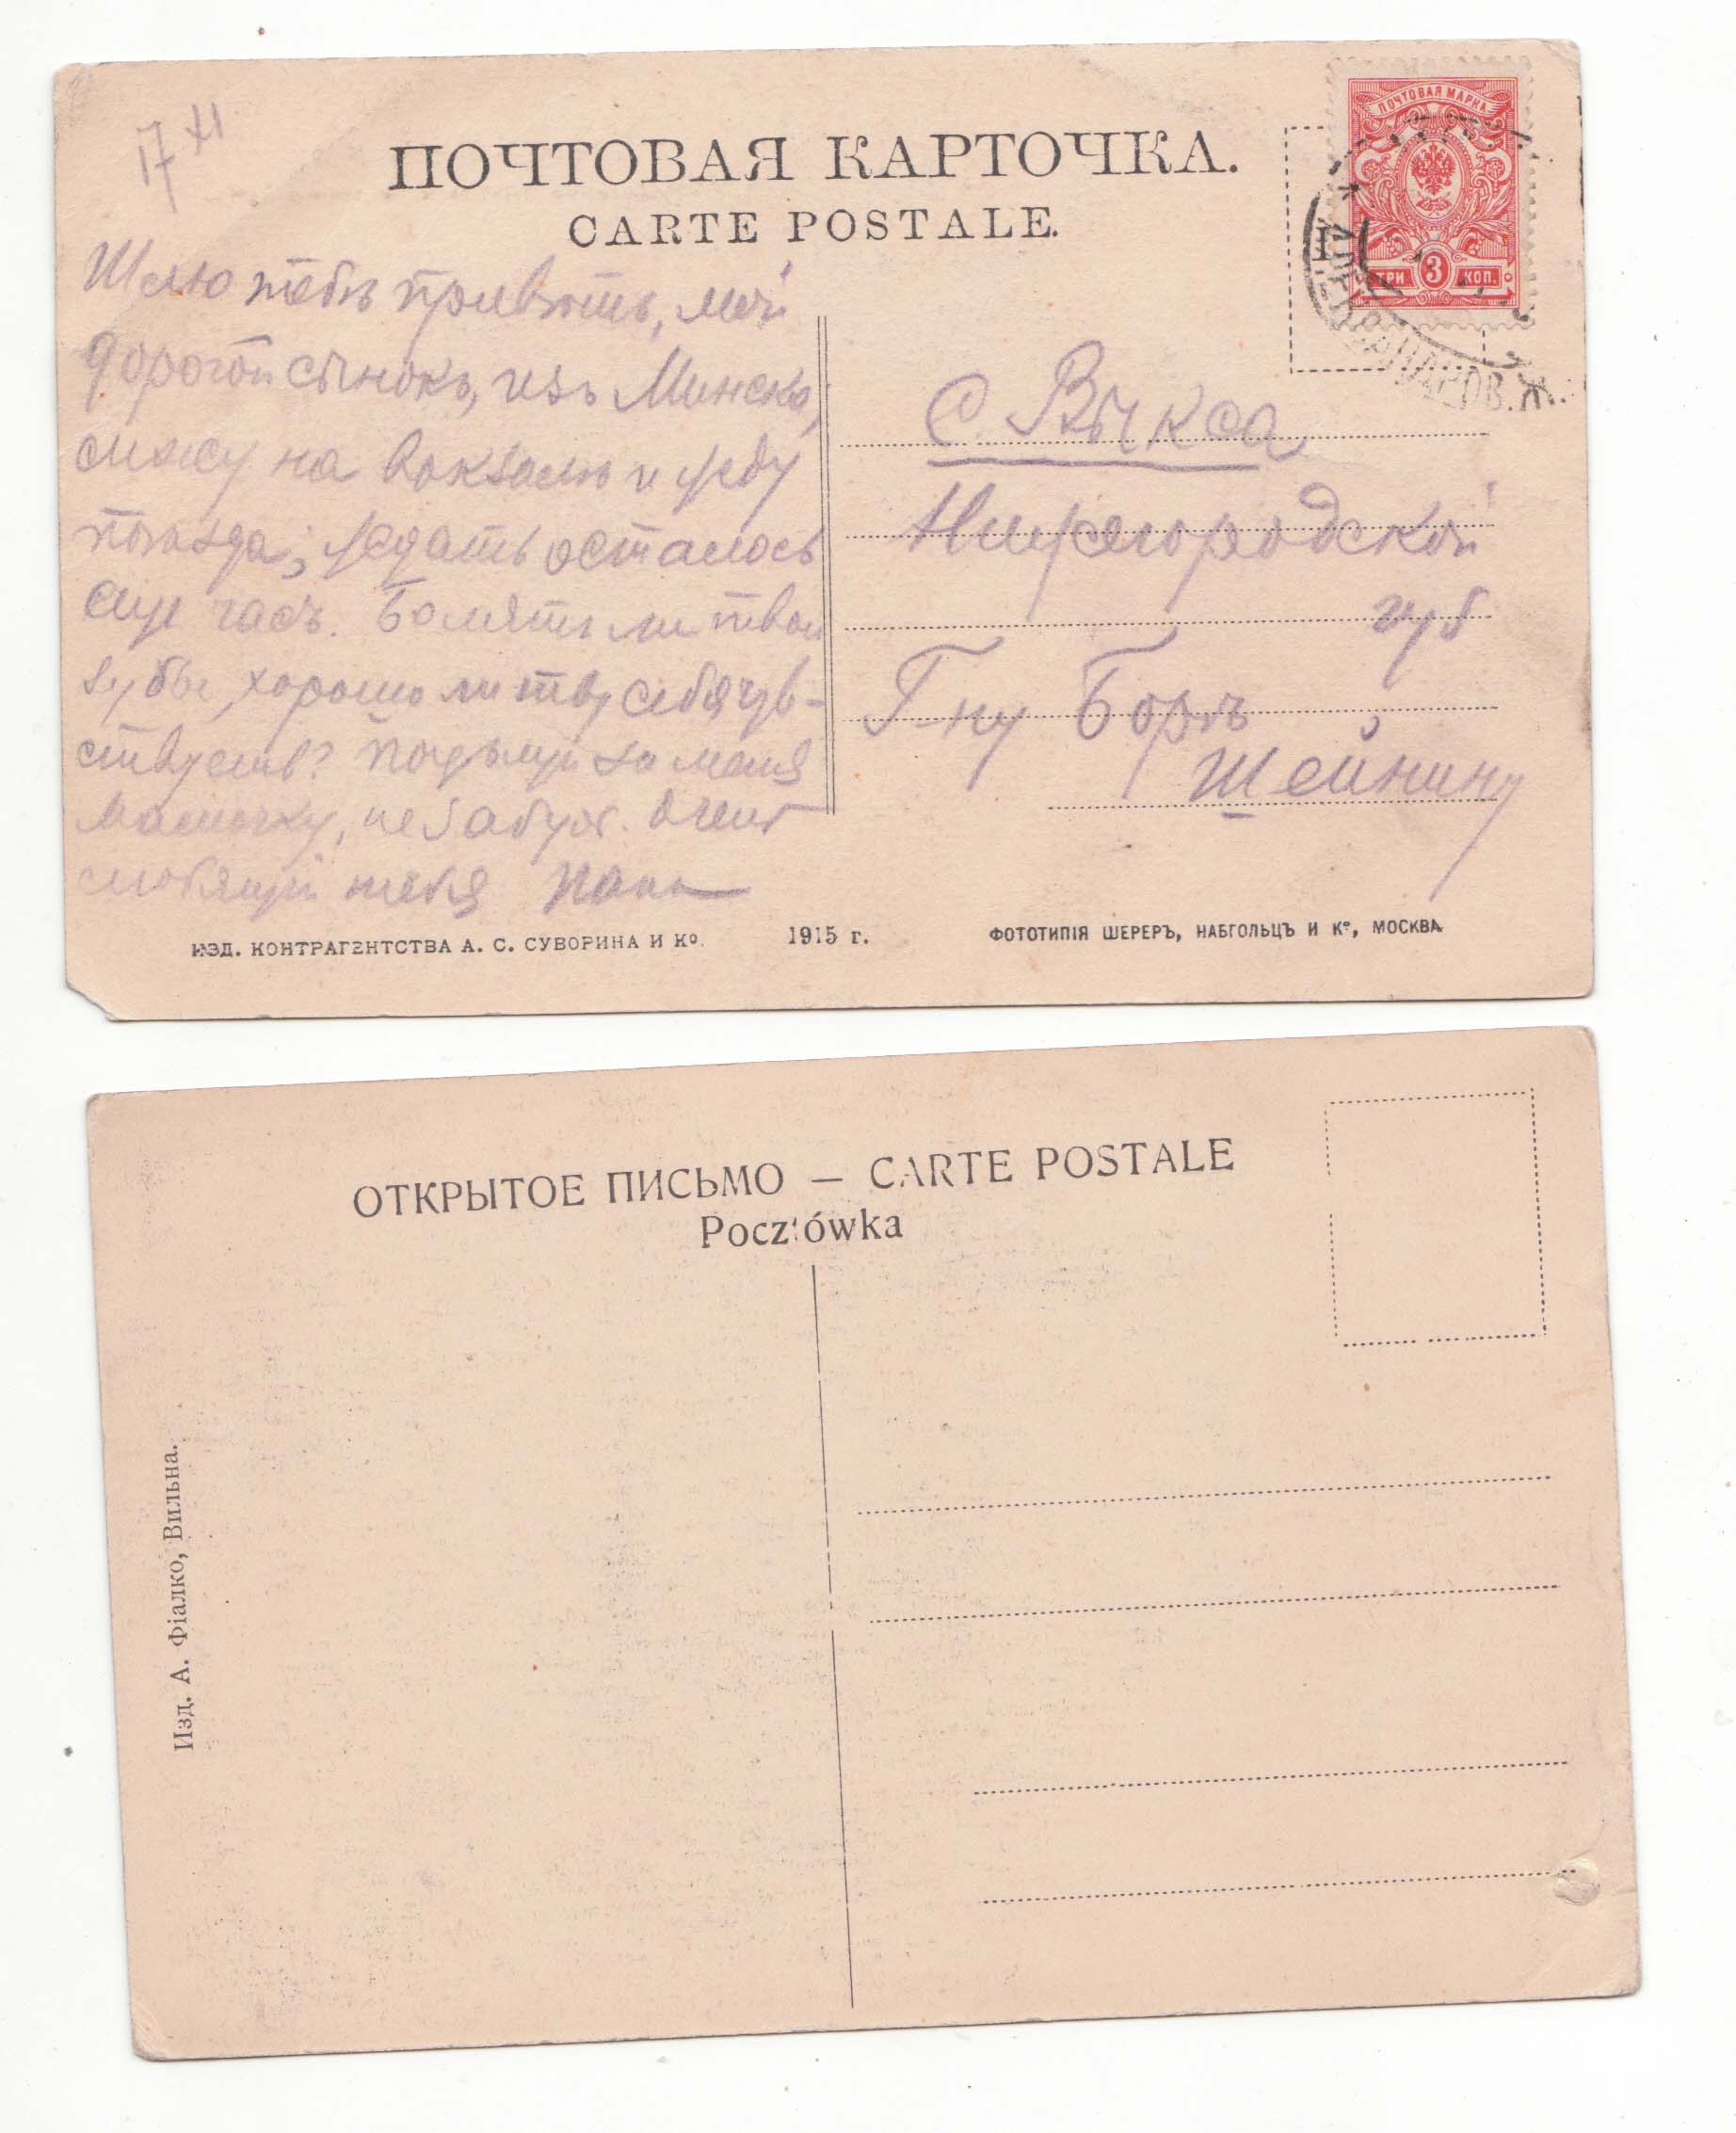 17 XI
ПОЧТОВАЯ КАРТОЧКА.
CARTE POSTALE.
ПОЧТОВАЯ МАРКА
ТРИ 3 КОП.
Шлю тебѣ привѣтъ, мой
дорогой сынокъ, изъ Минска,
сижу на вокзалѣ и жду
поѣзда; ждать осталось
еще часъ. Болятъ ли твои
зубы, хорошо ли ты себя чув-
ствуешь? Поцѣлуй за меня
мамочку, не забудь. Очень
любящій тебя Папа
С. Выкса
Нижегородской
губ
Г-ну Борѣ
Шейнину
ИЗД. КОНТРАГЕНТСТВА А. С. СУВОРИНА И Ко.
1915 г.
ФОТОТИПІЯ ШЕРЕРЪ, НАБГОЛЬЦЪ И Ко, МОСКВА
ОТКРЫТОЕ ПИСЬМО — CARTE POSTALE
Pocztówka
Изд. А. Фіалко, Вильна.